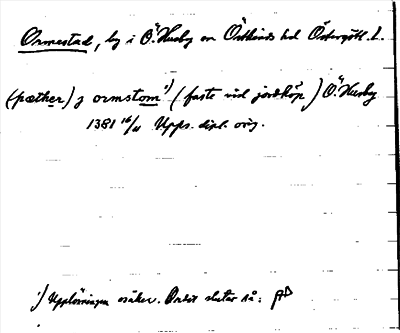 Ormestad, by i Ö. Husby sn Östkinds hd Östergötl. l.
(pæther) j ormstom 1) (faste vid jordköp) Ö. Husby
1381 16/11 Upps. dipl. orig.
1) Upplösningen osäker. Ordet slutar så: